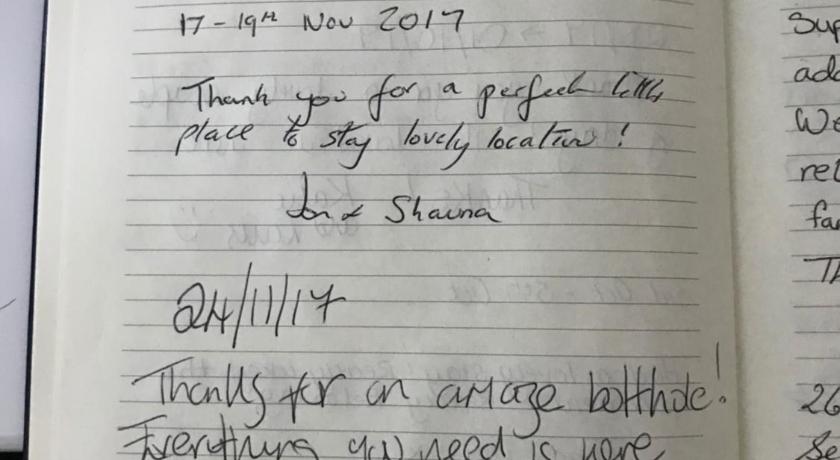 17 - 19th Nov 2017
Thank you for a perfect little
place to stay lovely location !
Jon & Shauna
24/11/17
Thanks for an amaze bolthole!
Everything you need is here
Sup
add
We
rel
fa
Th
26